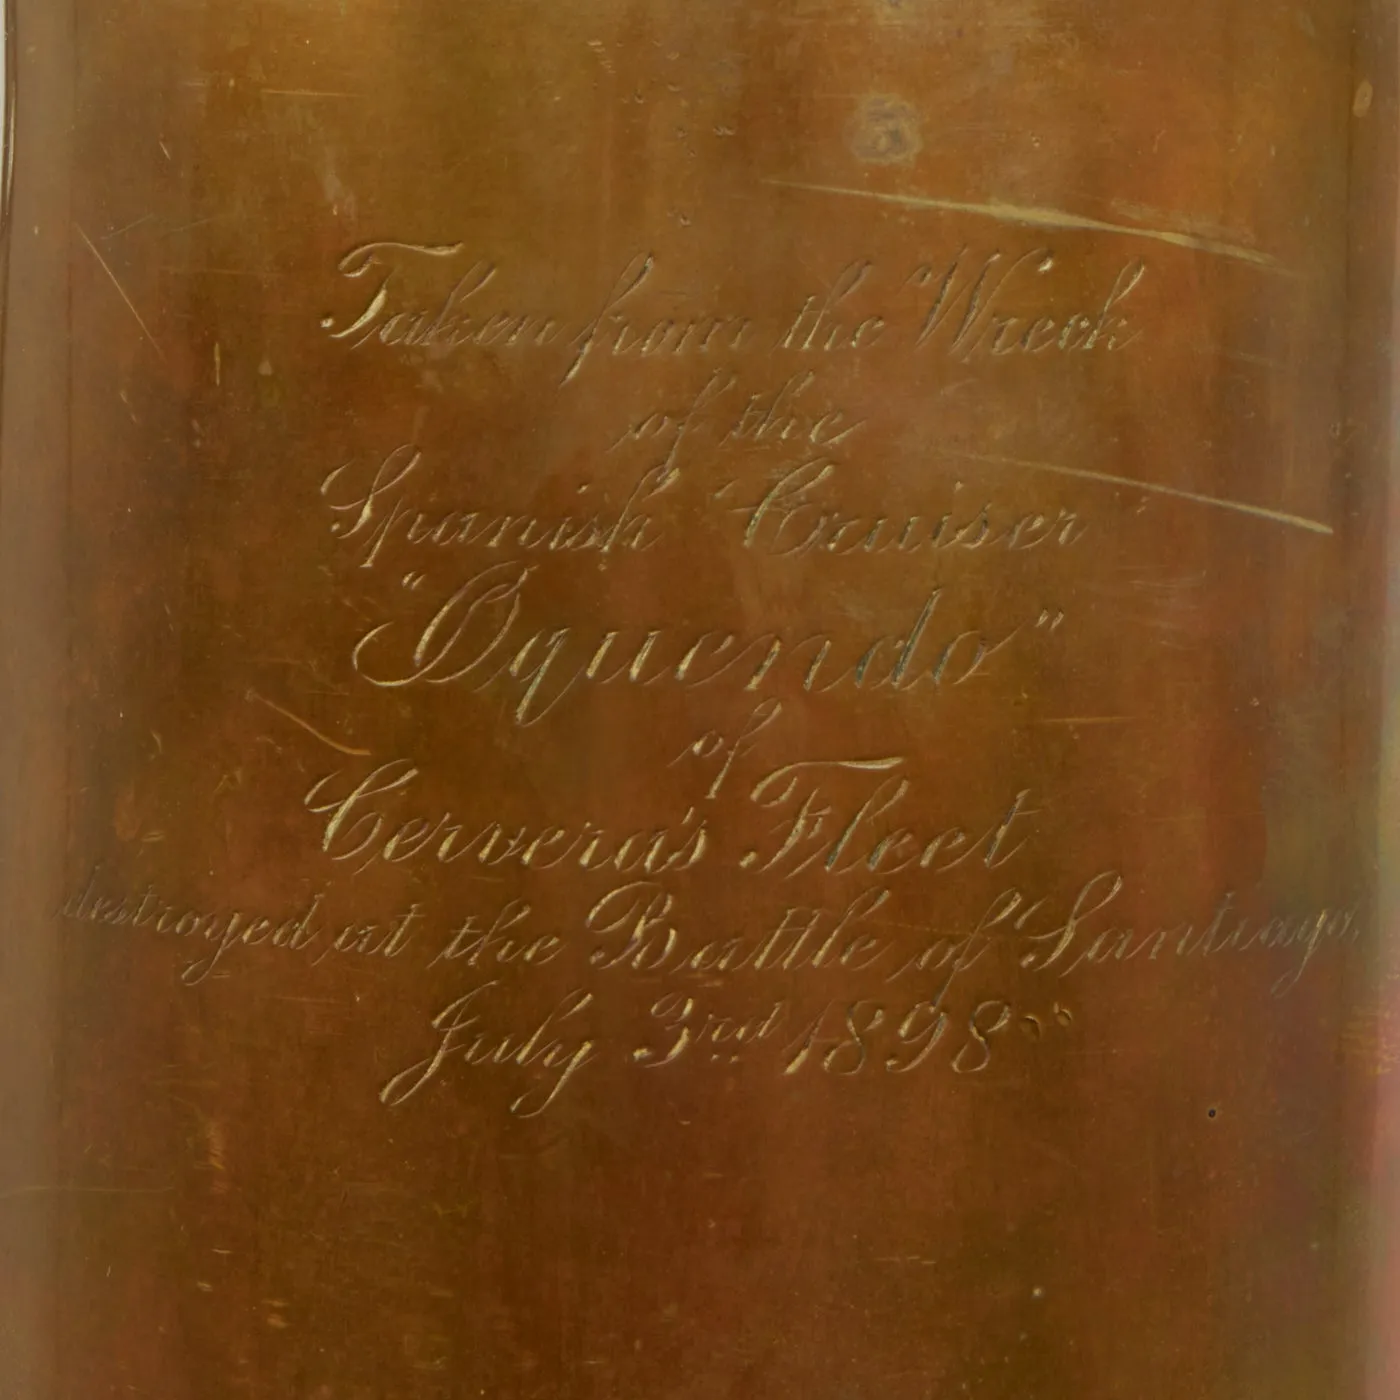 Taken from the Wreck
of the
Spanish Cruiser
"Oquendo"
of
Cervera's Fleet
destroyed at the Battle of Santiago,
July 3rd 1898"